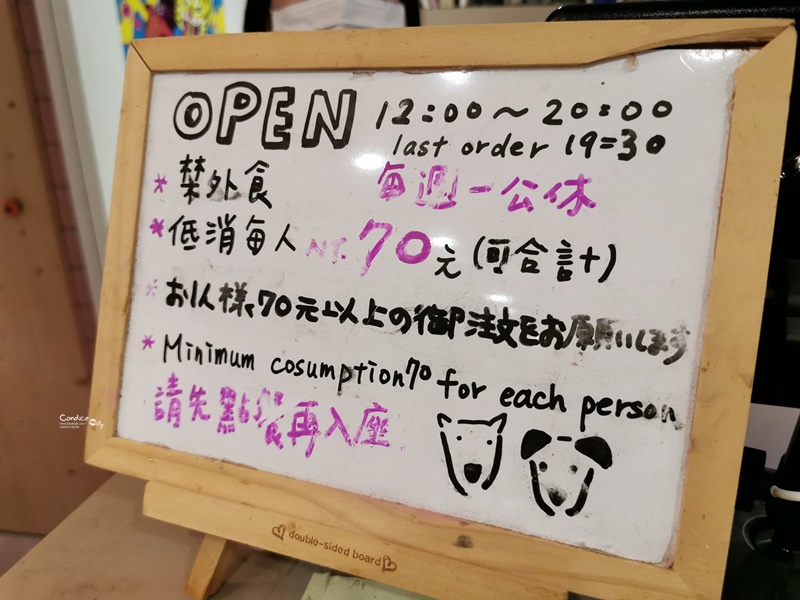 OPEN 12:00～20:00
last order 19:30
*禁外食 每週一公休
*低消每人NT.70元(可合計+)
*お1人様、70元以上の御注文をお願いします
*Minimum cosumption70 for each person
請先點餐再入座
double-sided board
Candice